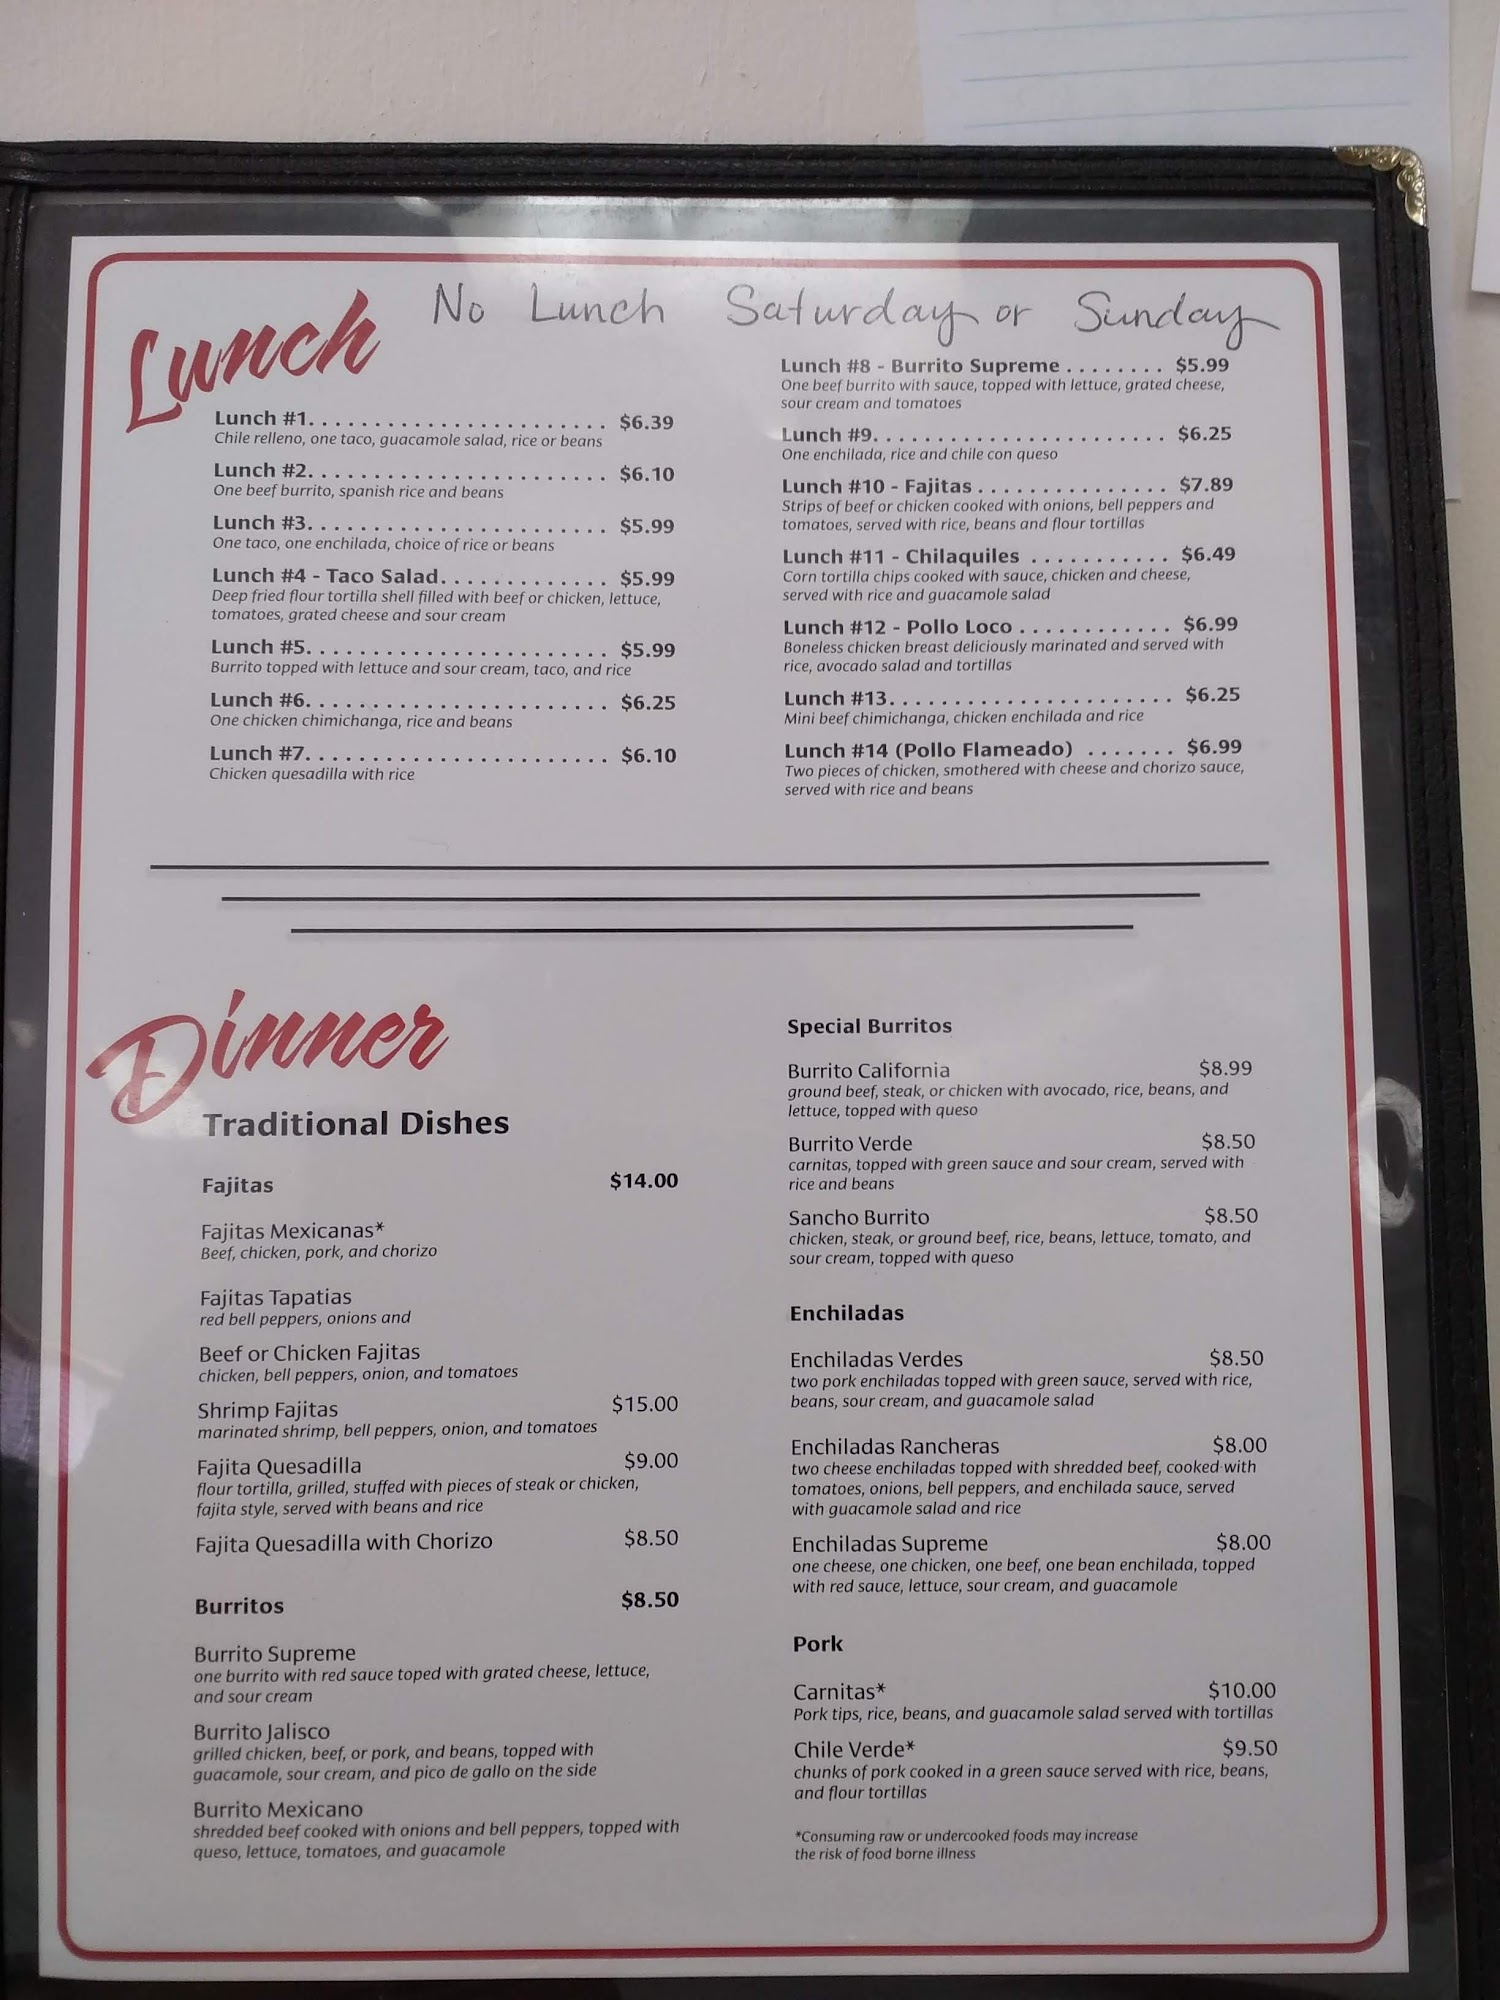 Lunch
No Lunch Saturday or Sunday
Lunch #1. . . . . . . . . . . . . . . . . . . . . . . . $6.39
Chile relleno, one taco, guacamole salad, rice or beans
Lunch #2. . . . . . . . . . . . . . . . . . . . . . . . $6.10
One beef burrito, spanish rice and beans
Lunch #3. . . . . . . . . . . . . . . . . . . . . . . . $5.99
One taco, one enchilada, choice of rice or beans
Lunch #4 - Taco Salad. . . . . . . . . . . . . $5.99
Deep fried flour tortilla shell filled with beef or chicken, lettuce,
tomatoes, grated cheese and sour cream
Lunch #5. . . . . . . . . . . . . . . . . . . . . . . . $5.99
Burrito topped with lettuce and sour cream, taco, and rice
Lunch #6. . . . . . . . . . . . . . . . . . . . . . . . $6.25
One chicken chimichanga, rice and beans
Lunch #7. . . . . . . . . . . . . . . . . . . . . . . . $6.10
Chicken quesadilla with rice
Lunch #8 - Burrito Supreme . . . . . . . . $5.99
One beef burrito with sauce, topped with lettuce, grated cheese,
sour cream and tomatoes
Lunch #9. . . . . . . . . . . . . . . . . . . . . . . . $6.25
One enchilada, rice and chile con queso
Lunch #10 - Fajitas . . . . . . . . . . . . . . . $7.89
Strips of beef or chicken cooked with onions, bell peppers and
tomatoes, served with rice, beans and flour tortillas
Lunch #11 - Chilaquiles . . . . . . . . . . . $6.49
Corn tortilla chips cooked with sauce, chicken and cheese,
served with rice and guacamole salad
Lunch #12 - Pollo Loco . . . . . . . . . . . . $6.99
Boneless chicken breast deliciously marinated and served with
rice, avocado salad and tortillas
Lunch #13. . . . . . . . . . . . . . . . . . . . . . . $6.25
Mini beef chimichanga, chicken enchilada and rice
Lunch #14 (Pollo Flameado) . . . . . . . $6.99
Two pieces of chicken, smothered with cheese and chorizo sauce,
served with rice and beans
Dinner
Traditional Dishes
Fajitas $14.00
Fajitas Mexicanas*
Beef, chicken, pork, and chorizo
Fajitas Tapatias
red bell peppers, onions and
Beef or Chicken Fajitas
chicken, bell peppers, onion, and tomatoes
Shrimp Fajitas $15.00
marinated shrimp, bell peppers, onion, and tomatoes
Fajita Quesadilla $9.00
flour tortilla, grilled, stuffed with pieces of steak or chicken,
fajita style, served with beans and rice
Fajita Quesadilla with Chorizo $8.50
Burritos $8.50
Burrito Supreme
one burrito with red sauce toped with grated cheese, lettuce,
and sour cream
Burrito Jalisco
grilled chicken, beef, or pork, and beans, topped with
guacamole, sour cream, and pico de gallo on the side
Burrito Mexicano
shredded beef cooked with onions and bell peppers, topped with
queso, lettuce, tomatoes, and guacamole
Special Burritos
Burrito California $8.99
ground beef, steak, or chicken with avocado, rice, beans, and
lettuce, topped with queso
Burrito Verde $8.50
carnitas, topped with green sauce and sour cream, served with
rice and beans
Sancho Burrito $8.50
chicken, steak, or ground beef, rice, beans, lettuce, tomato, and
sour cream, topped with queso
Enchiladas
Enchiladas Verdes $8.50
two pork enchiladas topped with green sauce, served with rice,
beans, sour cream, and guacamole salad
Enchiladas Rancheras $8.00
two cheese enchiladas topped with shredded beef, cooked with
tomatoes, onions, bell peppers, and enchilada sauce, served
with guacamole salad and rice
Enchiladas Supreme $8.00
one cheese, one chicken, one beef, one bean enchilada, topped
with red sauce, lettuce, sour cream, and guacamole
Pork
Carnitas* $10.00
Pork tips, rice, beans, and guacamole salad served with tortillas
Chile Verde* $9.50
chunks of pork cooked in a green sauce served with rice, beans,
and flour tortillas
*Consuming raw or undercooked foods may increase
the risk of food borne illness